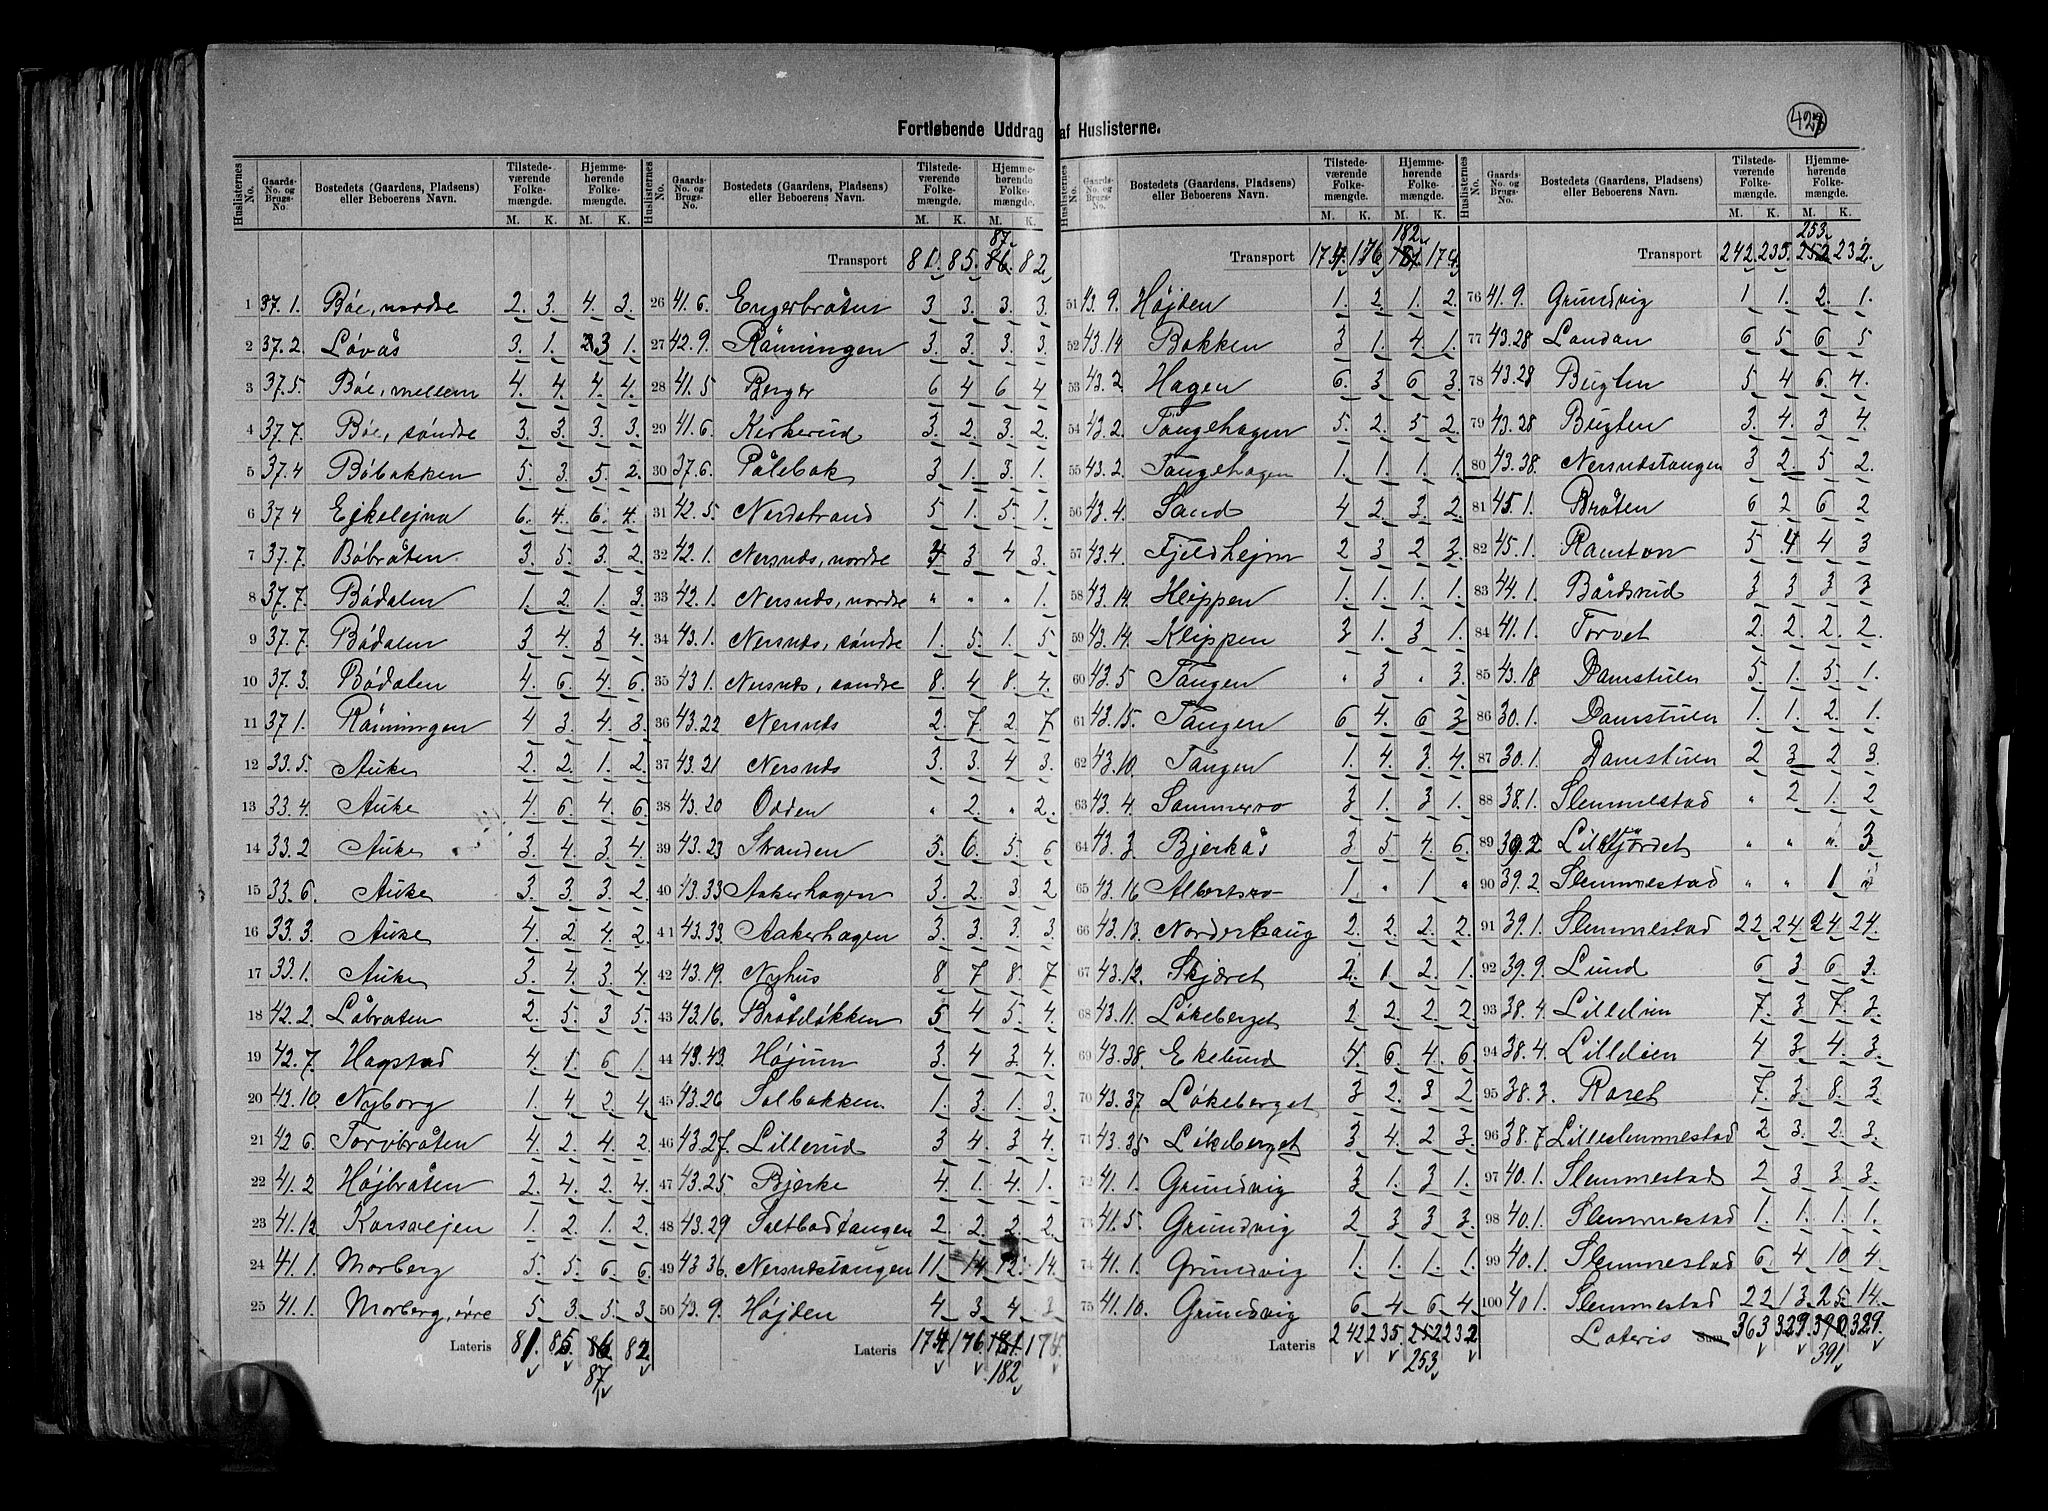 427
Fortløbende Uddrag af Huslisterne.
Huslisternes No. | Gaards-No. og Brugs-No. | Bostedets (Gaardens, Pladsens) eller Beboerens Navn. | Tilstedeværende Folkemængde. M. K. | Hjemmehørende Folkemængde. M. K.
1 37.1. Bøe, nordre 2. 3. 4. 3.
2 37.2. Løvås 3. 1. 3 1.
3 37.5. Bøe, mellem 4. 4. 4. 4.
4 37.7. Bøe, søndre 3. 3. 3. 3.
5 37.4 Bøbakken 5. 3. 5. 2.
6 37.4 Ejkelejna 6. 4. 6. 4.
7 37.7. Bøbråten 3. 5. 3. 2.
8 37.7. Bødalen 1. 2. 1. 3.
9 37.7. Bødalen 3. 4. 3 4.
10 37.3. Bødalen 4. 6. 4. 6.
11 37.1 Rønningen 4 3. 4. 3.
12 33.5. Auke 2. 2. 1. 2.
13 33.4. Auke 4. 6. 4. 6.
14 33.2 Auke 3. 4. 3. 4.
15 33.6. Auke 3. 3. 3. 2.
16 33.3. Auke 4. 2 4. 2.
17 33.1. Auke 3. 4. 3. 4.
18 42.2. Låbråten 2. 5. 3 5.
19 42.7. Hagstad 4. 1. 6 1.
20 42.10. Nyborg 1. 4. 2. 4.
21 42.6. Torvbråten 4. 2. 4. 2.
22 41.2 Højbråten 2. 4. 2. 4.
23 41.12 Korsvejen 1. 2. 1. 2.
24 41.1. Morberg 5. 5. 6. 6.
25 41.1. Morberg, øvre 5. 3. 5. 3.
Lateris 81. 85. 86. 82.
87
Transport 81. 85. 86. 82.
87.
26 41.6. Engerbråten 3. 3. 3. 3.
27 42.9. Rønningen 3. 3. 3. 3.
28 41.5 Berger 6 4 6 4
29 41.6. Kirkerud 3. 2. 3. 2.
30 37.6. Pålebak 3 1. 3. 1.
31 42.5. Nordstrand 5 1. 5. 1.
32 42.1. Nersnes, nordre 4 3 4 3.
33 42.1. Nersnes, nordre " " " 1.
34 43.1. Nersnes, søndre 1. 5. 1. 5
35 43.1. Nersnes, søndre 8. 4 8. 4.
36 43.22 Nersnes 2. 7. 2. 7
37 43.21 Nersnes 3. 3. 4 3.
38 43.20 Odden " 2. " 2.
39 43.23 Stranden 5. 6. 5. 6
40 43.33 Aakerhagen 3 2. 3. 2
41 43.33. Aakerhagen 3. 3. 3. 3
42 43.19. Nyhus 8 7 8. 7
43 43.16. Bråteløkken 5 4 5 4.
44 43.43. Højum 3. 4 3. 4.
45 43.26 Solbakken 1. 3. 1. 3.
46 43.27. Lillerud 3 4. 3 4.
47 43.25 Bjerke 4. 1. 4. 1.
48 43.29 Saltbodtangen 2 2. 2. 2.
49 43.36 Nersnestangen 11. 14 12. 14.
50 43.9. Højden 4 3. 4. 3
Lateris 174. 176. 181. 174.
182
Transport 174. 176. 181. 174.
182.
51 43.9. Højden 1. 2. 1. 2.
52 43.14 Bakken 3 1. 4. 1.
53 43.2. Hagen 6. 3 6 3.
54 43.2. Tangehagen 5. 2. 5 2.
55 43.2. Tangehagen 1. 1. 1. 1.
56 43.4. Sand 4 2. 3. 2.
57 43.4. Fjeldhejm 2 3 2 3.
58 43.14. Klippen 1. 1. 1. 1.
59 43.14. Klippen 3 1. 3 1.
60 43.5 Tangen " 3 " 3.
61 43.15. Tangen 6 4. 6 3
62 43.10. Tangen 1. 4. 3. 4.
63 43.4. Sommerro 3 1. 3 1.
64 43.3. Bjerkås 3 5 4. 6.
65 43.16 Albertsro 1. " 1 "
66 43.13. Norderhaug 2. 2. 2. 2.
67 43.12. Skjæret 2. 1. 2. 1.
68 43.11. Løkeberget 2. 2. 2. 2.
69 43.38. Ekelund 4. 6. 4. 6.
70 43.37. Løkeberget 3 2. 3 2
71 43.35 Løkeberget 3. 4. 2 3.
72 41.1. Grundvig 3 1. 3 1.
73 41.5. Grundvig 2 3 3 3.
74 41.1. Grundvig 1. 1. 1. 1.
75 41.10. Grundvig 6 4 6 4.
Lateris 242 235. 252 232
253
Transport 242. 235. 252 232.
253.
76 41.9. Grundvig 1 1. 2. 1.
77 43.28 Landan 6 5 6 5
78 43.28 Bugten 5 4 6. 4.
79 43.28 Bugten 3. 4. 3 4.
80 43.38. Nersnestangen 3 2. 5 2.
81 45.1. Bråten 6 2 6 2
82 45.1. Ramton 5 4 4 3
83 44.1. Bårdsrud 3 3 3 3
84 41.1. Torvet 2. 2. 2. 2.
85 43.18 Damstuen 5. 1. 5. 1.
86 30.1. Damstuen 1. 1. 2 1.
87 30.1. Damstuen 2 3 2 3.
88 38.1. Slemmestad " 2 1. 2
89 39.2 " " " 3
90 39.2. Slemmestad " " 1 "
91 39.1. Slemmestad 22 24 24 24.
92 39.9. Lund 6 3 6 3.
93 38.4. Lillelien 7. 3 7. 3.
94 38.4. Lilleleien 4 3 4. 3.
95 38.3. Roset 7. 3. 8 3
96 38.7 Lilleslemmestad 2 3. 2. 3.
97 40.1. Slemmestad 2 3 3. 3.
98 40.1. Slemmestad 1. 1. 1. 1.
99 40.1. Slemmestad 6 4 10 4
100 40.1. Slemmestad 22 13. 25. 14.
Lateris Sum 363 329. 390 329.
391